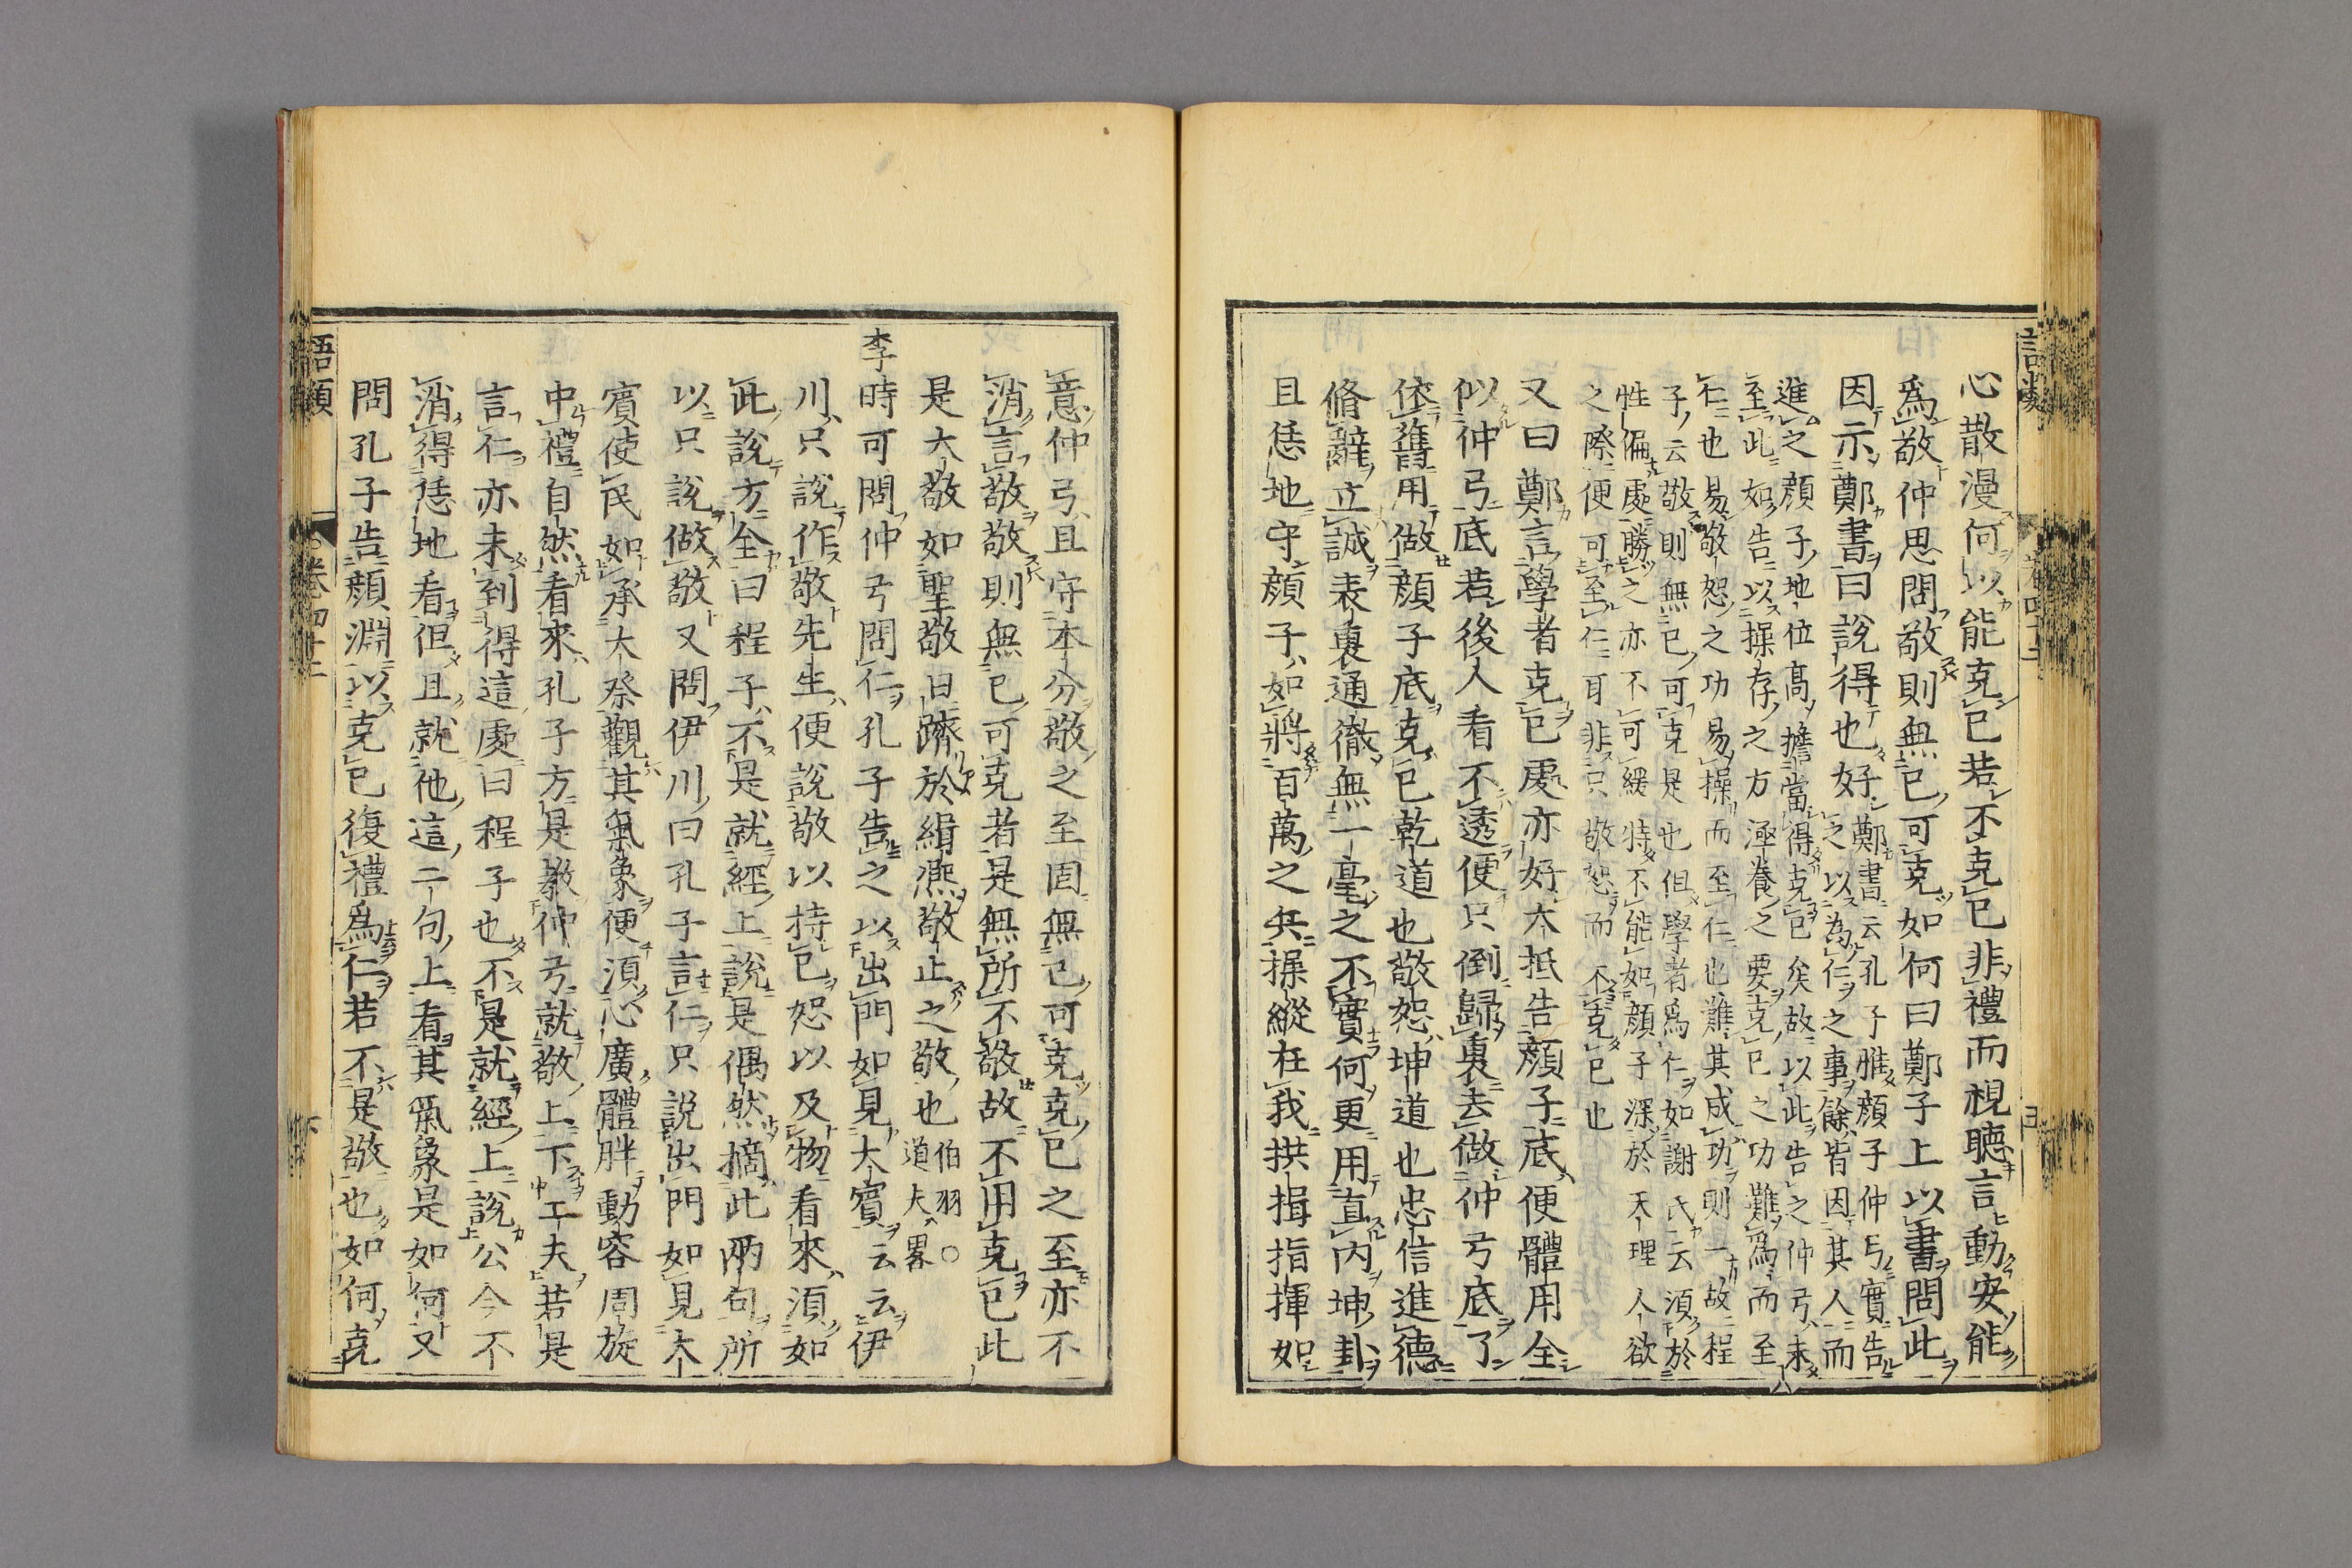 心散漫何以能克已若不克已非禮而視聽言動安能
爲敬仲思問敬則無已可克如何曰鄭子上以書問此
因示鄭書曰說得也好鄭書云孔子惟顏子仲弓實告
之以為仁之事餘皆因其人而
進之顏子地位高擔當得克已矣故以此告之仲弓未
至此如告以操存之方涵養之要克已之功難爲而至
仁也易敬恕之功易操而至仁也難其成功則一故程
子云敬則無已可克是也但學者爲仁如謝氏云須於
性偏處勝之亦不可緩特不能如顏子深於天理人欲
之際便可至仁耳非只敬恕而不克已也
又曰鄭言學者克已處亦好大抵告顏子底便體用全
似仲弓底若後人看不透便只倒歸裏去做仲弓底了
依舊用做顏子底克已乾道也敬恕坤道也忠信進德
脩辭立誠表裏通徹無一毫之不實何更用直內坤卦
且恁地守顏子如將百萬之兵操縱在我拱揖指揮如
意仲弓且守本分敬之至固無已可克克已之至亦不
消言敬敬則無已可克者是無所不敬故不用克已此
是大敬如聖敬日躋於緝熙敬止之敬也伯羽○
道夫畧
李時可問仲弓問仁孔子告之以出門如見大賓云云伊
川只說作敬先生便說敬以持已恕以及物看來須如
此說方全曰程子不是就經上說是偶然摘此兩句所
以只說做敬又問伊川曰孔子言仁只說出門如見大
賓使民如承大祭觀其氣象便須心廣體胖動容周旋
中禮自然看來孔子方是教仲弓就敬上下工夫若是
言仁亦未到得這處曰程子也不是就經上說公今不
消得恁地看但且就他這二句上看其氣象是如何又
問孔子告顏淵以克已復禮爲仁若不是敬也如何克
語類 卷四十二